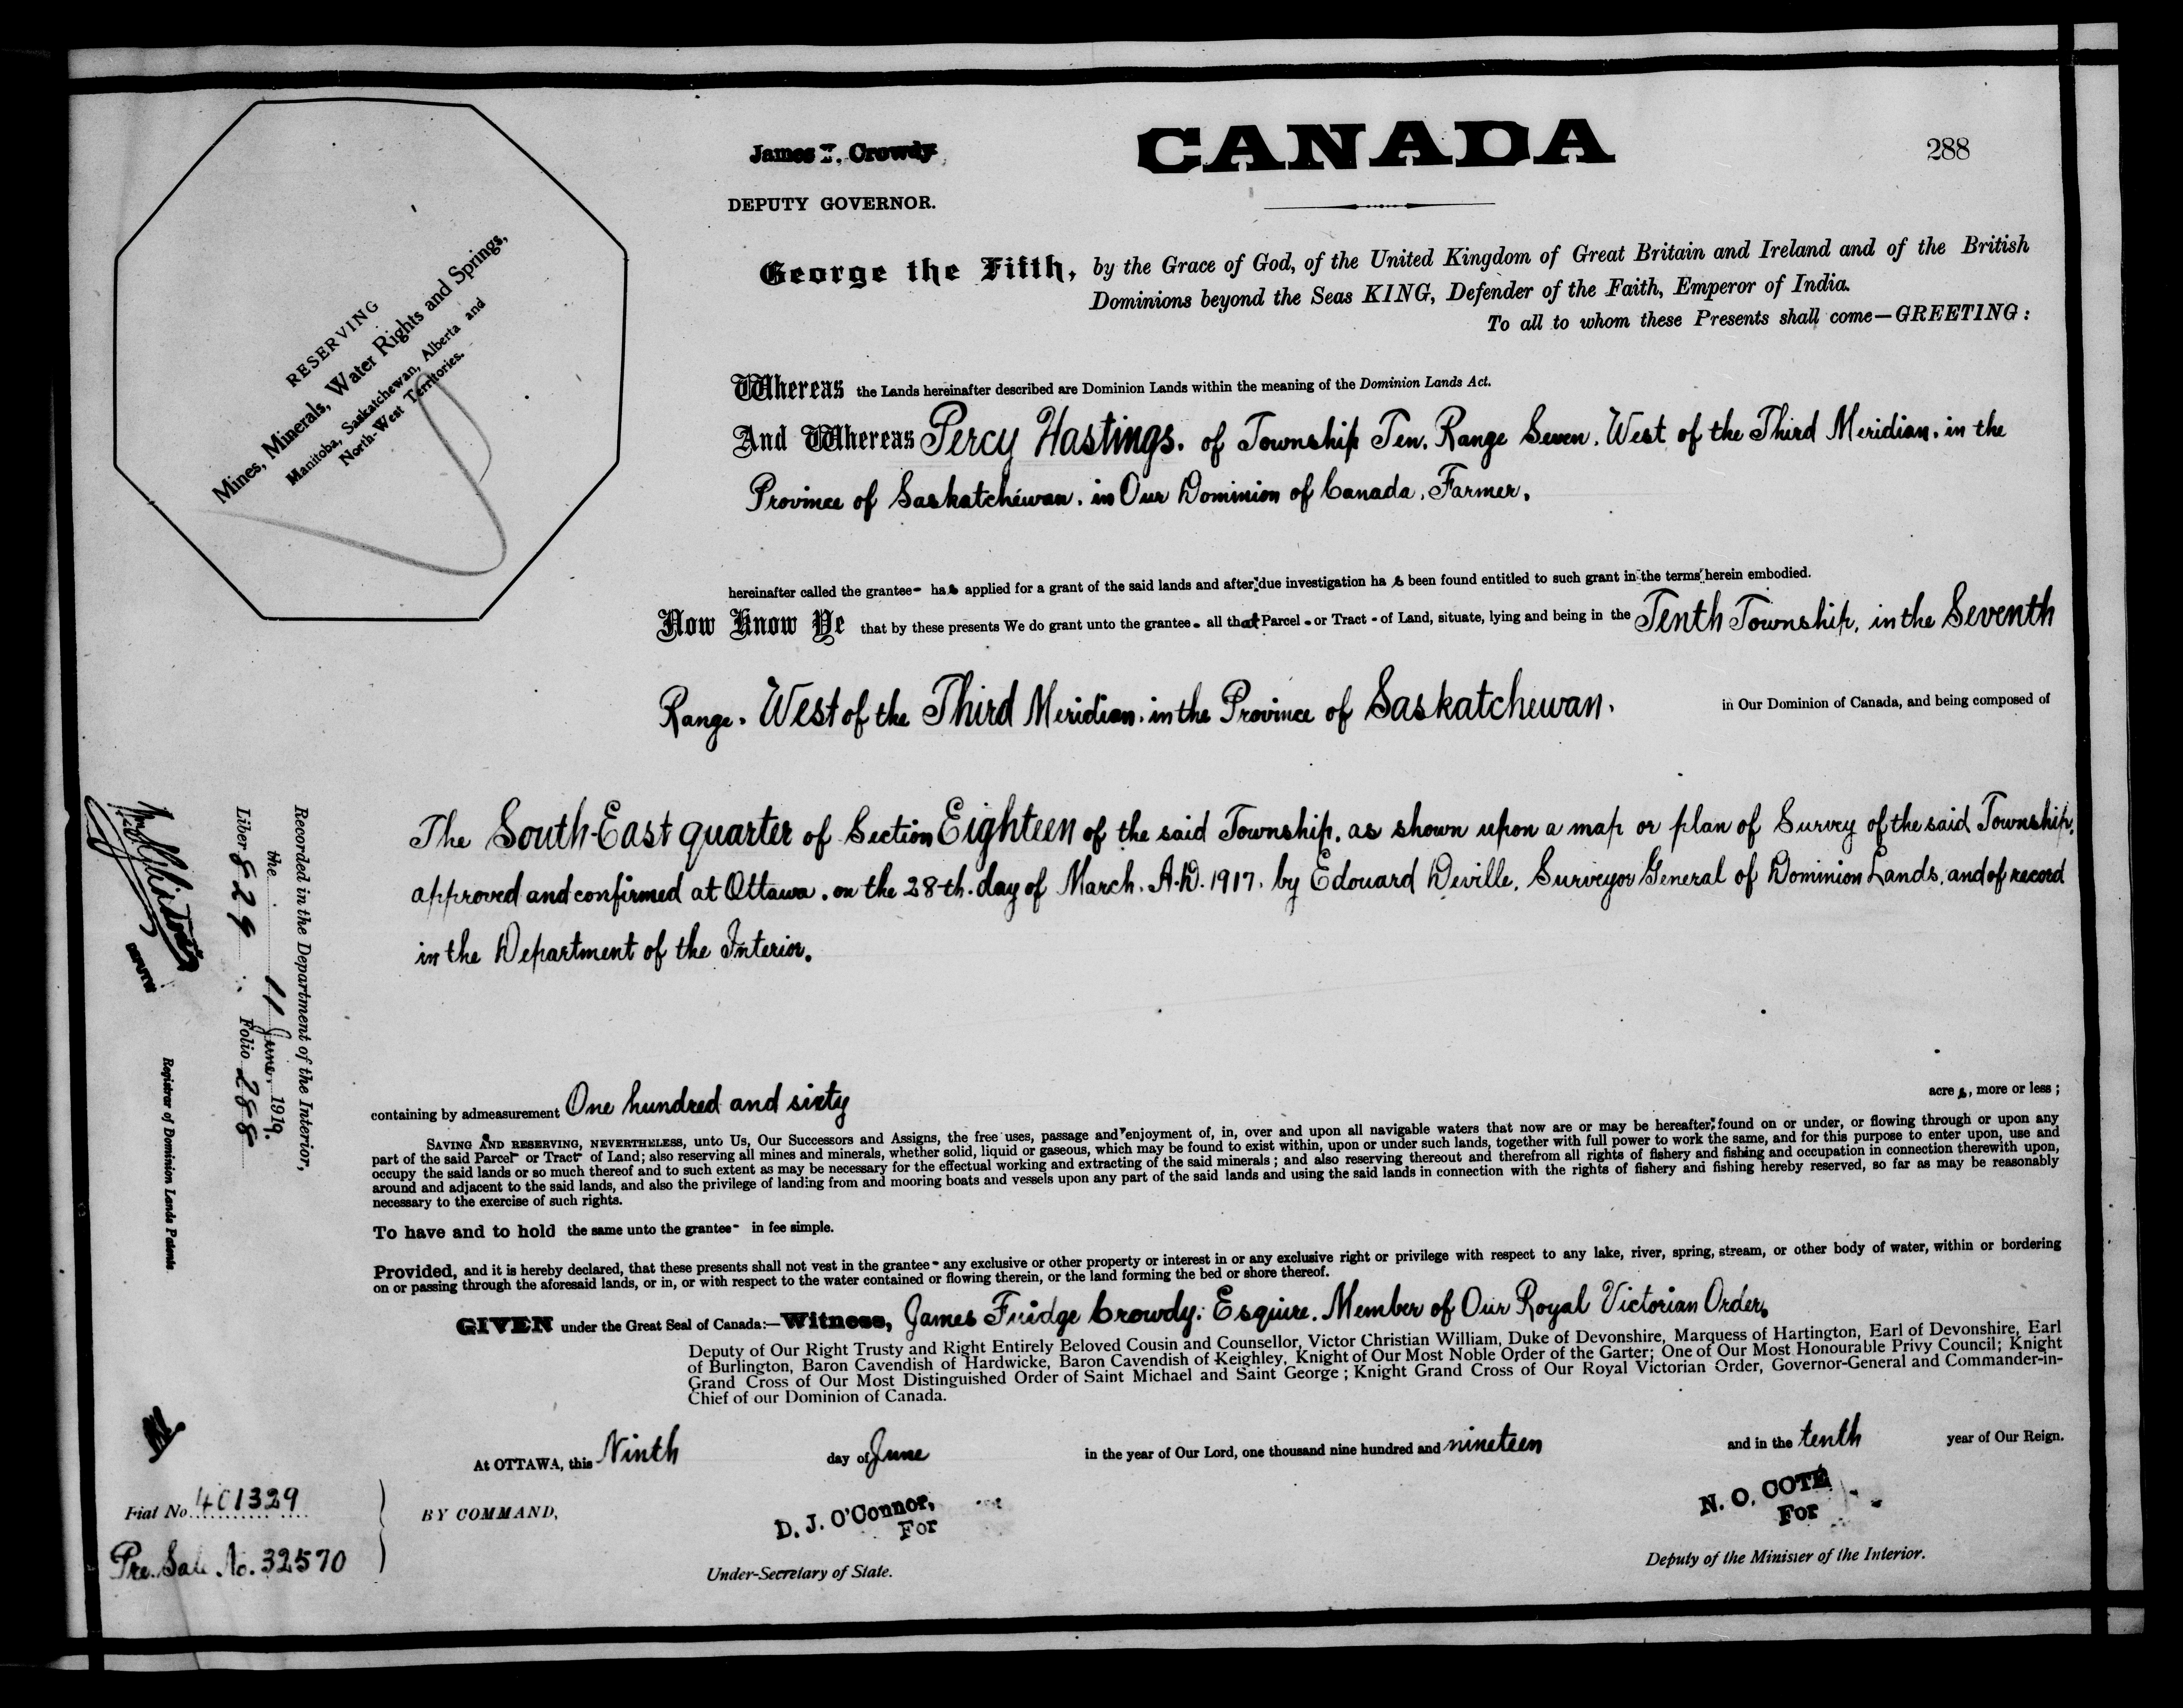 CANADA
288
James F. Crowdy
DEPUTY GOVERNOR.
RESERVING
Mines, Minerals, Water Rights and Springs,
Manitoba, Saskatchewan, Alberta and
North-West Territories.
George the Fifth, by the Grace of God, of the United Kingdom of Great Britain and Ireland and of the British
Dominions beyond the Seas KING, Defender of the Faith, Emperor of India.
To all to whom these Presents shall come—GREETING:
Whereas the Lands hereinafter described are Dominion Lands within the meaning of the Dominion Lands Act.
And Whereas Percy Hastings. of Township Ten. Range Seven. West of the Third Meridian. in the
Province of Saskatchewan. in Our Dominion of Canada. Farmer.
hereinafter called the grantee- has applied for a grant of the said lands and after due investigation has been found entitled to such grant in the terms herein embodied.
Now Know Ye that by these presents We do grant unto the grantee- all that Parcel - or Tract - of Land, situate, lying and being in the Tenth Township, in the Seventh
Range. West of the Third Meridian. in the Province of Saskatchewan. in Our Dominion of Canada, and being composed of
The South-East quarter of Section Eighteen of the said Township. as shown upon a map or plan of Survey of the said Township.
approved and confirmed at Ottawa. on the 28th. day of March. A.D. 1917. by Edouard Deville. Surveyor General of Dominion Lands. and of record
in the Department of the Interior.
containing by admeasurement One hundred and sixty acres, more or less;
SAVING AND RESERVING, NEVERTHELESS, unto Us, Our Successors and Assigns, the free uses, passage and enjoyment of, in, over and upon all navigable waters that now are or may be hereafter found on or under, or flowing through or upon any
part of the said Parcel- or Tract- of Land; also reserving all mines and minerals, whether solid, liquid or gaseous, which may be found to exist within, upon or under such lands, together with full power to work the same, and for this purpose to enter upon, use and
occupy the said lands or so much thereof and to such extent as may be necessary for the effectual working and extracting of the said minerals; and also reserving thereout and therefrom all rights of fishery and fishing and occupation in connection therewith upon,
around and adjacent to the said lands, and also the privilege of landing from and mooring boats and vessels upon any part of the said lands and using the said lands in connection with the rights of fishery and fishing hereby reserved, so far as may be reasonably
necessary to the exercise of such rights.
To have and to hold the same unto the grantee- in fee simple.
Provided, and it is hereby declared, that these presents shall not vest in the grantee- any exclusive or other property or interest in or any exclusive right or privilege with respect to any lake, river, spring, stream, or other body of water, within or bordering
on or passing through the aforesaid lands, or in, or with respect to the water contained or flowing therein, or the land forming the bed or shore thereof.
GIVEN under the Great Seal of Canada:—Witness, James Fuidge Crowdy. Esquire. Member of Our Royal Victorian Order.
Deputy of Our Right Trusty and Right Entirely Beloved Cousin and Counsellor, Victor Christian William, Duke of Devonshire, Marquess of Hartington, Earl of Devonshire, Earl
of Burlington, Baron Cavendish of Hardwicke, Baron Cavendish of Keighley, Knight of Our Most Noble Order of the Garter; One of Our Most Honourable Privy Council; Knight
Grand Cross of Our Most Distinguished Order of Saint Michael and Saint George; Knight Grand Cross of Our Royal Victorian Order, Governor-General and Commander-in-
Chief of our Dominion of Canada.
At OTTAWA, this Ninth day of June in the year of Our Lord, one thousand nine hundred and nineteen and in the tenth year of Our Reign.
BY COMMAND,
D. J. O'Connor,
For
Under-Secretary of State.
N. O. COTÉ
For
Deputy of the Minister of the Interior.
Recorded in the Department of the Interior,
the 11 June, 1919.
Liber 829 Folio 288
DEPUTY
Registrar of Dominion Lands Patents
Fiat No. 401329
Pre. Sale No. 32570